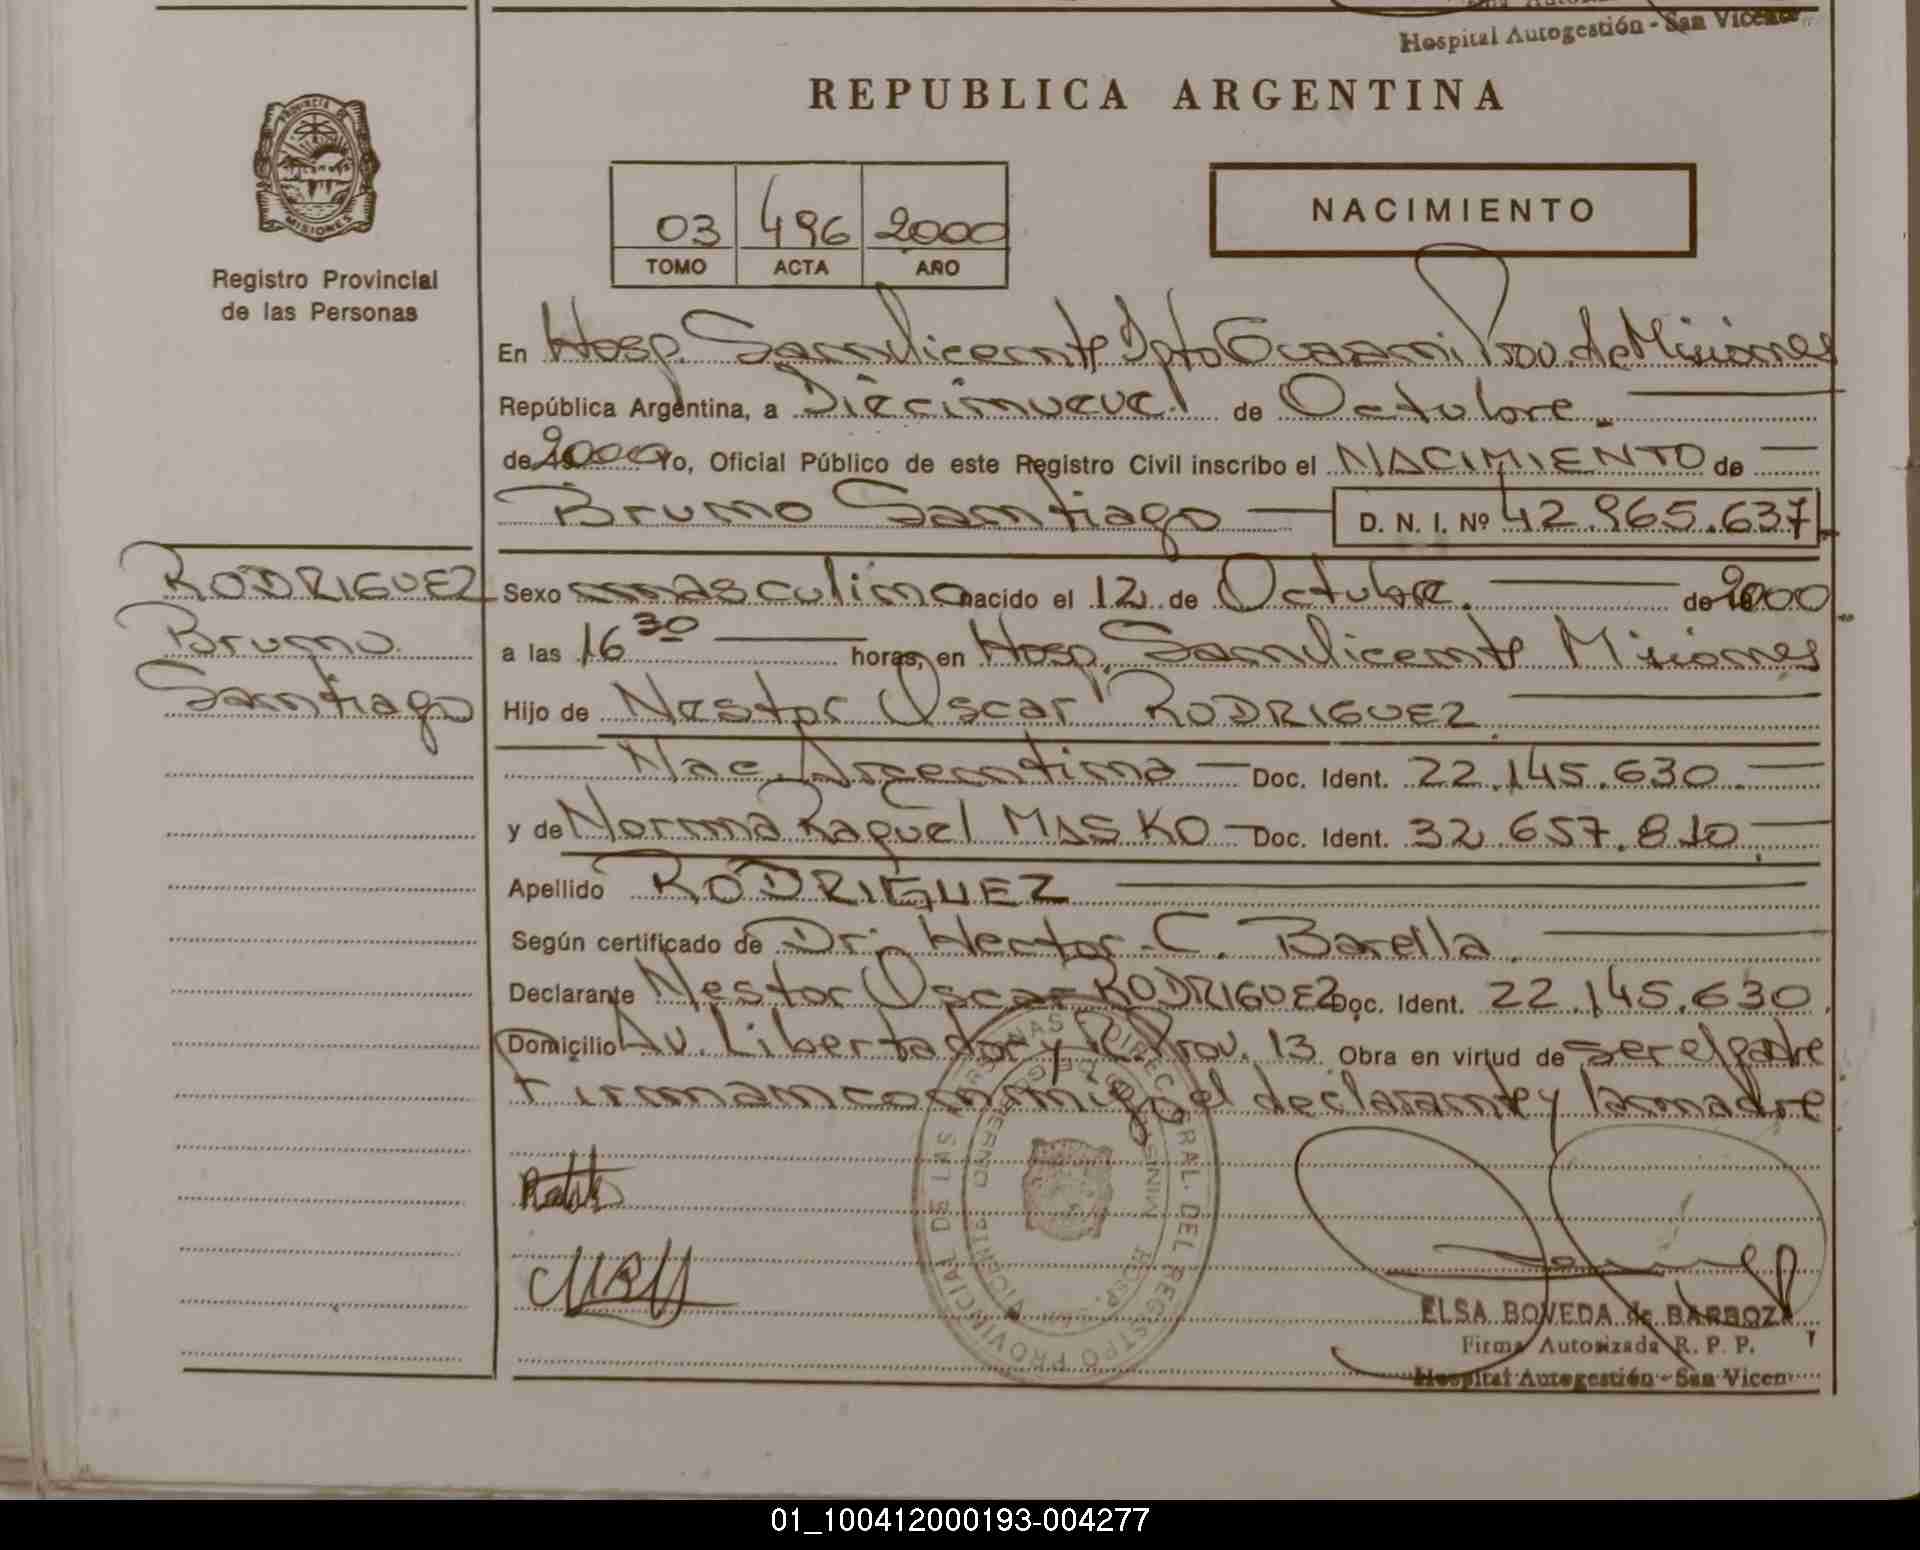 Hospital Autogestión - San Vicente
REPUBLICA ARGENTINA
PROVINCIA DE
MISIONES
Registro Provincial
de las Personas
03 496 2000
TOMO ACTA AÑO
NACIMIENTO
En Hosp. San Vicente Dpto Guaraní Prov. de Misiones
República Argentina, a Diecinueve de Octubre
de 2000 Yo, Oficial Público de este Registro Civil inscribo el NACIMIENTO de
Bruno Santiago D. N. I. Nº 42.965.637
RODRIGUEZ
Bruno
Santiago
Sexo masculino nacido el 12 de Octubre. de 2000
a las 16 30 horas, en Hosp. San Vicente Misiones
Hijo de Nestor Oscar RODRIGUEZ
Nac. Argentina Doc. Ident. 22.145.630
y de Norma Raquel MASKO Doc. Ident. 32.657.810
Apellido RODRIGUEZ
Según certificado de Dr. Hector C. Barella
Declarante Nestor Oscar RODRIGUEZ Doc. Ident. 22.145.630
Domicilio Av. Libertador y R. Prov. 13 Obra en virtud de ser el padre
Firman conmigo el declarante y la madre
DIREC GRAL. DEL REGISTRO PROVINCIAL DE LAS PERSONAS
MINIST DE GOBIERNO
HOSP. SAN VICENTE
ELSA BOVEDA de BARBOZA
Firma Autorizada R. P. P.
Hospital Autogestión - San Vicen
01_100412000193-004277